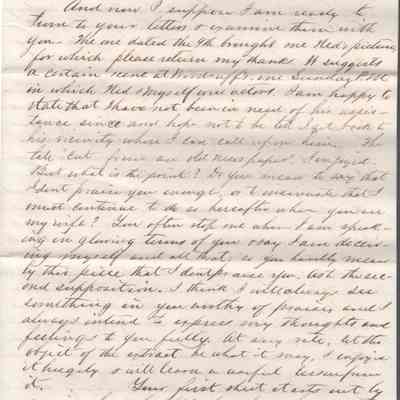 And now I suppose I am ready to
turn to your letters & examine them with
you. The one dated the 9th brought me Ned's picture
for which please return my thanks. It suggests
a certain scene at Woodruff's one Sunday P.M.
in which Ned & myself were actors. I am happy to
state that I have not been in need of his assis-
tance since and hope not to be till I get back to
his vicinity where I can call upon him. The
tale "cut from an old newspaper" I enjoyed.
But what is the point? Do you mean to say that
I dont praise you enough, or to insinuate that I
must continue to do so hereafter when you are
my wife? You often stop me when I am speak-
ing in glowing terms of you & say I am deceiv-
ing myself and all that, so you hardly mean
by this piece that I dont praise you. As to the sec-
ond supposition. I think I will always see
something in you worthy of praise and I
always intend to express my thoughts and
feelings to you fully. At any rate, let the
object of the extract be what it may, I enjoyed
it hugely & will learn a useful lesson from
it. Your first sheet starts out by